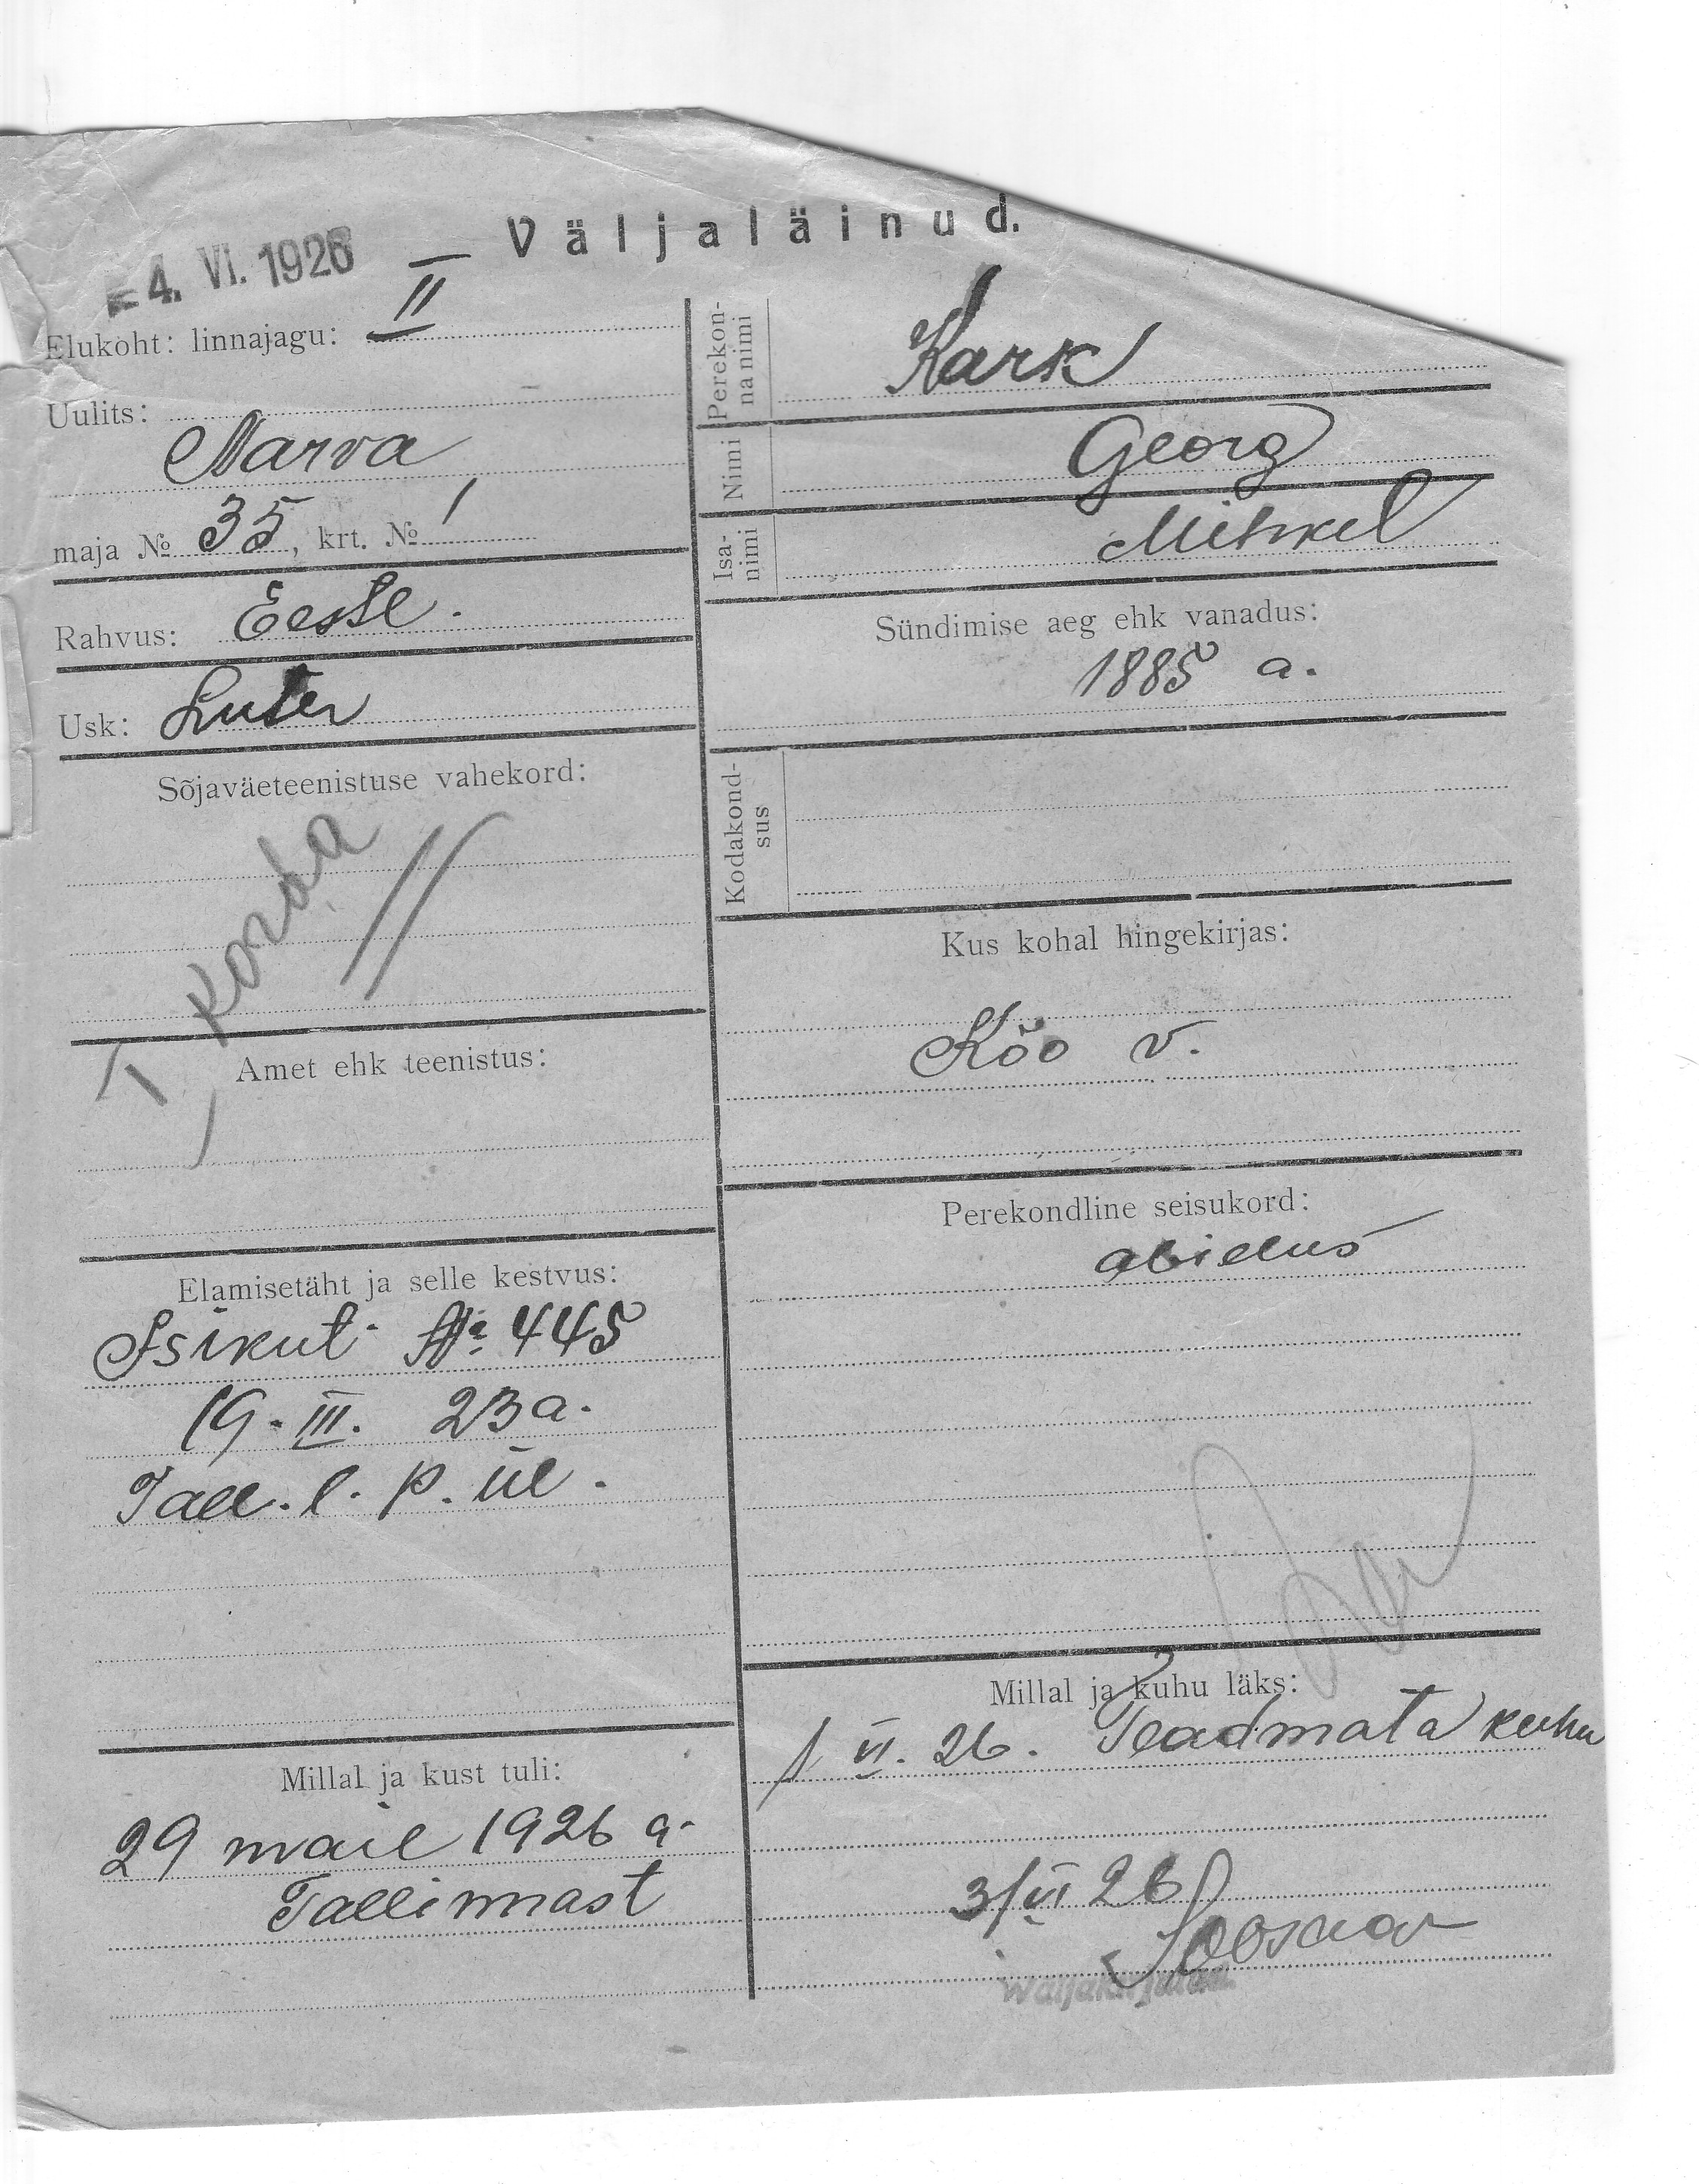 Väljaläinud.
4. VI. 1926
Elukoht: linnajagu: II
Uulits:
Narva
maja № 35, krt. № 1
Rahvus: Eestl.
Usk: Luter
Sõjaväeteenistuse vahekord:
korda
Amet ehk teenistus:
Elamisetäht ja selle kestvus:
Isikut № 445
19. III. 23 a.
Tall. l. p. ül.
Millal ja kust tuli:
29 mail 1926 a.
Tallinnast
Perekonnanimi Kark
Nimi Georg
Isanimi Mihkel
Sündimise aeg ehk vanadus:
1885 a.
Kodakondsus
Kus kohal hingekirjas:
Kõo v.
Perekondline seisukord:
abielus
Millal ja kuhu läks:
1 VI. 26. Teadmata kuhu
3/VI 26
Väljakirjutatud